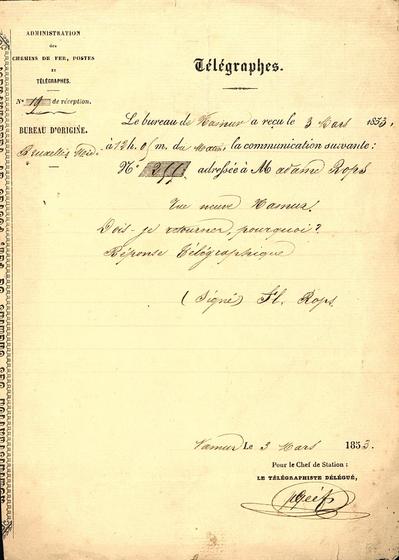 ADMINISTRATION
des
CHEMINS DE FER, POSTES
ET
TÉLÉGRAPHES.
N° 19 de réception.
BUREAU D'ORIGINE.
Bruxelles Midi
Télégraphes.
Le bureau de Namur a reçu le 3 Mars 1853,
à 12 h. 0/ m. du Matin, la communication suivante :
N° adressée à Madame Rops
rue neuve Namur.
Dois-je retourner, pourquoi ?
Réponse télégraphique
(Signé) Fl. Rops
Namur Le 3 Mars 1853.
Pour le Chef de Station :
LE TÉLÉGRAPHISTE DÉLÉGUÉ,